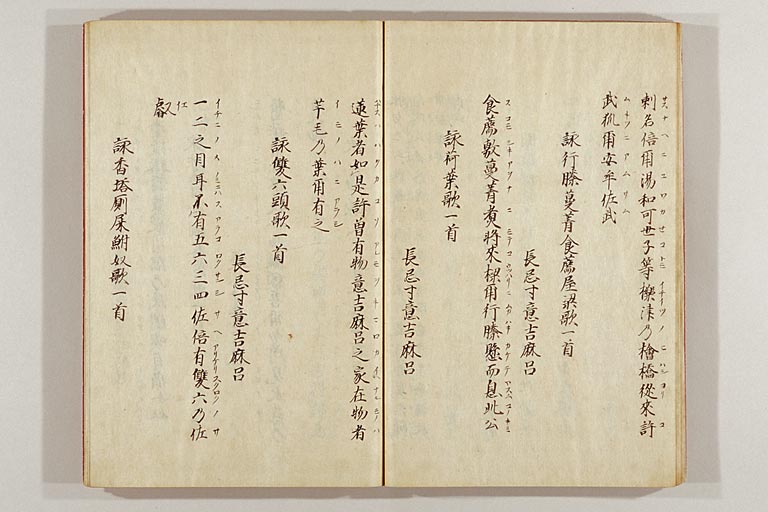 刺名倍尓湯和可世子等櫟津乃檜橋従来許
武狐尓安牟佐武
詠行騰蔓菁食薦屋梁歌一首
長忌寸意吉麻呂
食薦敷蔓菁煮将来樑尓行騰懸而息此公
詠荷葉歌一首
長忌寸意吉麻呂
蓮葉者如是許曽有物意吉麻呂之家在物者
芋毛乃葉尓有之
詠雙六頭歌一首
長忌寸意吉麻呂
一二之目耳不有五六三四佐倍有雙六乃佐
叡
詠香塔厠屎鮒奴歌一首